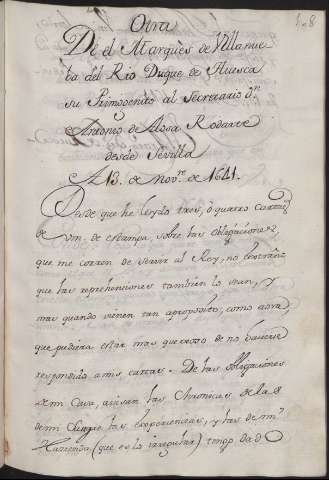 Otra
De el Marquès de Villanue
ba del Rio Duque de Huesca
su Primogenito al Secretario Dn.
Antonio de Alosa Rodarte
desde Sevilla
A 13. de Novre. de 1641.
Desde que he leydo tres, ò quatro cartas
de vm. de estampa, sobre las obligaciones,
que me corren de servir al Rey, no
que las reprehensiones tambien lo sean, y
mas quando vienen tan aproposito, como aora,
que pudiera estar mas quexoso de no haverse
respondido a mis cartas. De las obligaciones
de mi Casa, avisan las Chronicas, de las
de mi Sangre las experiencias, y las de mi
Hacienda (que es la irregular) tengo dado